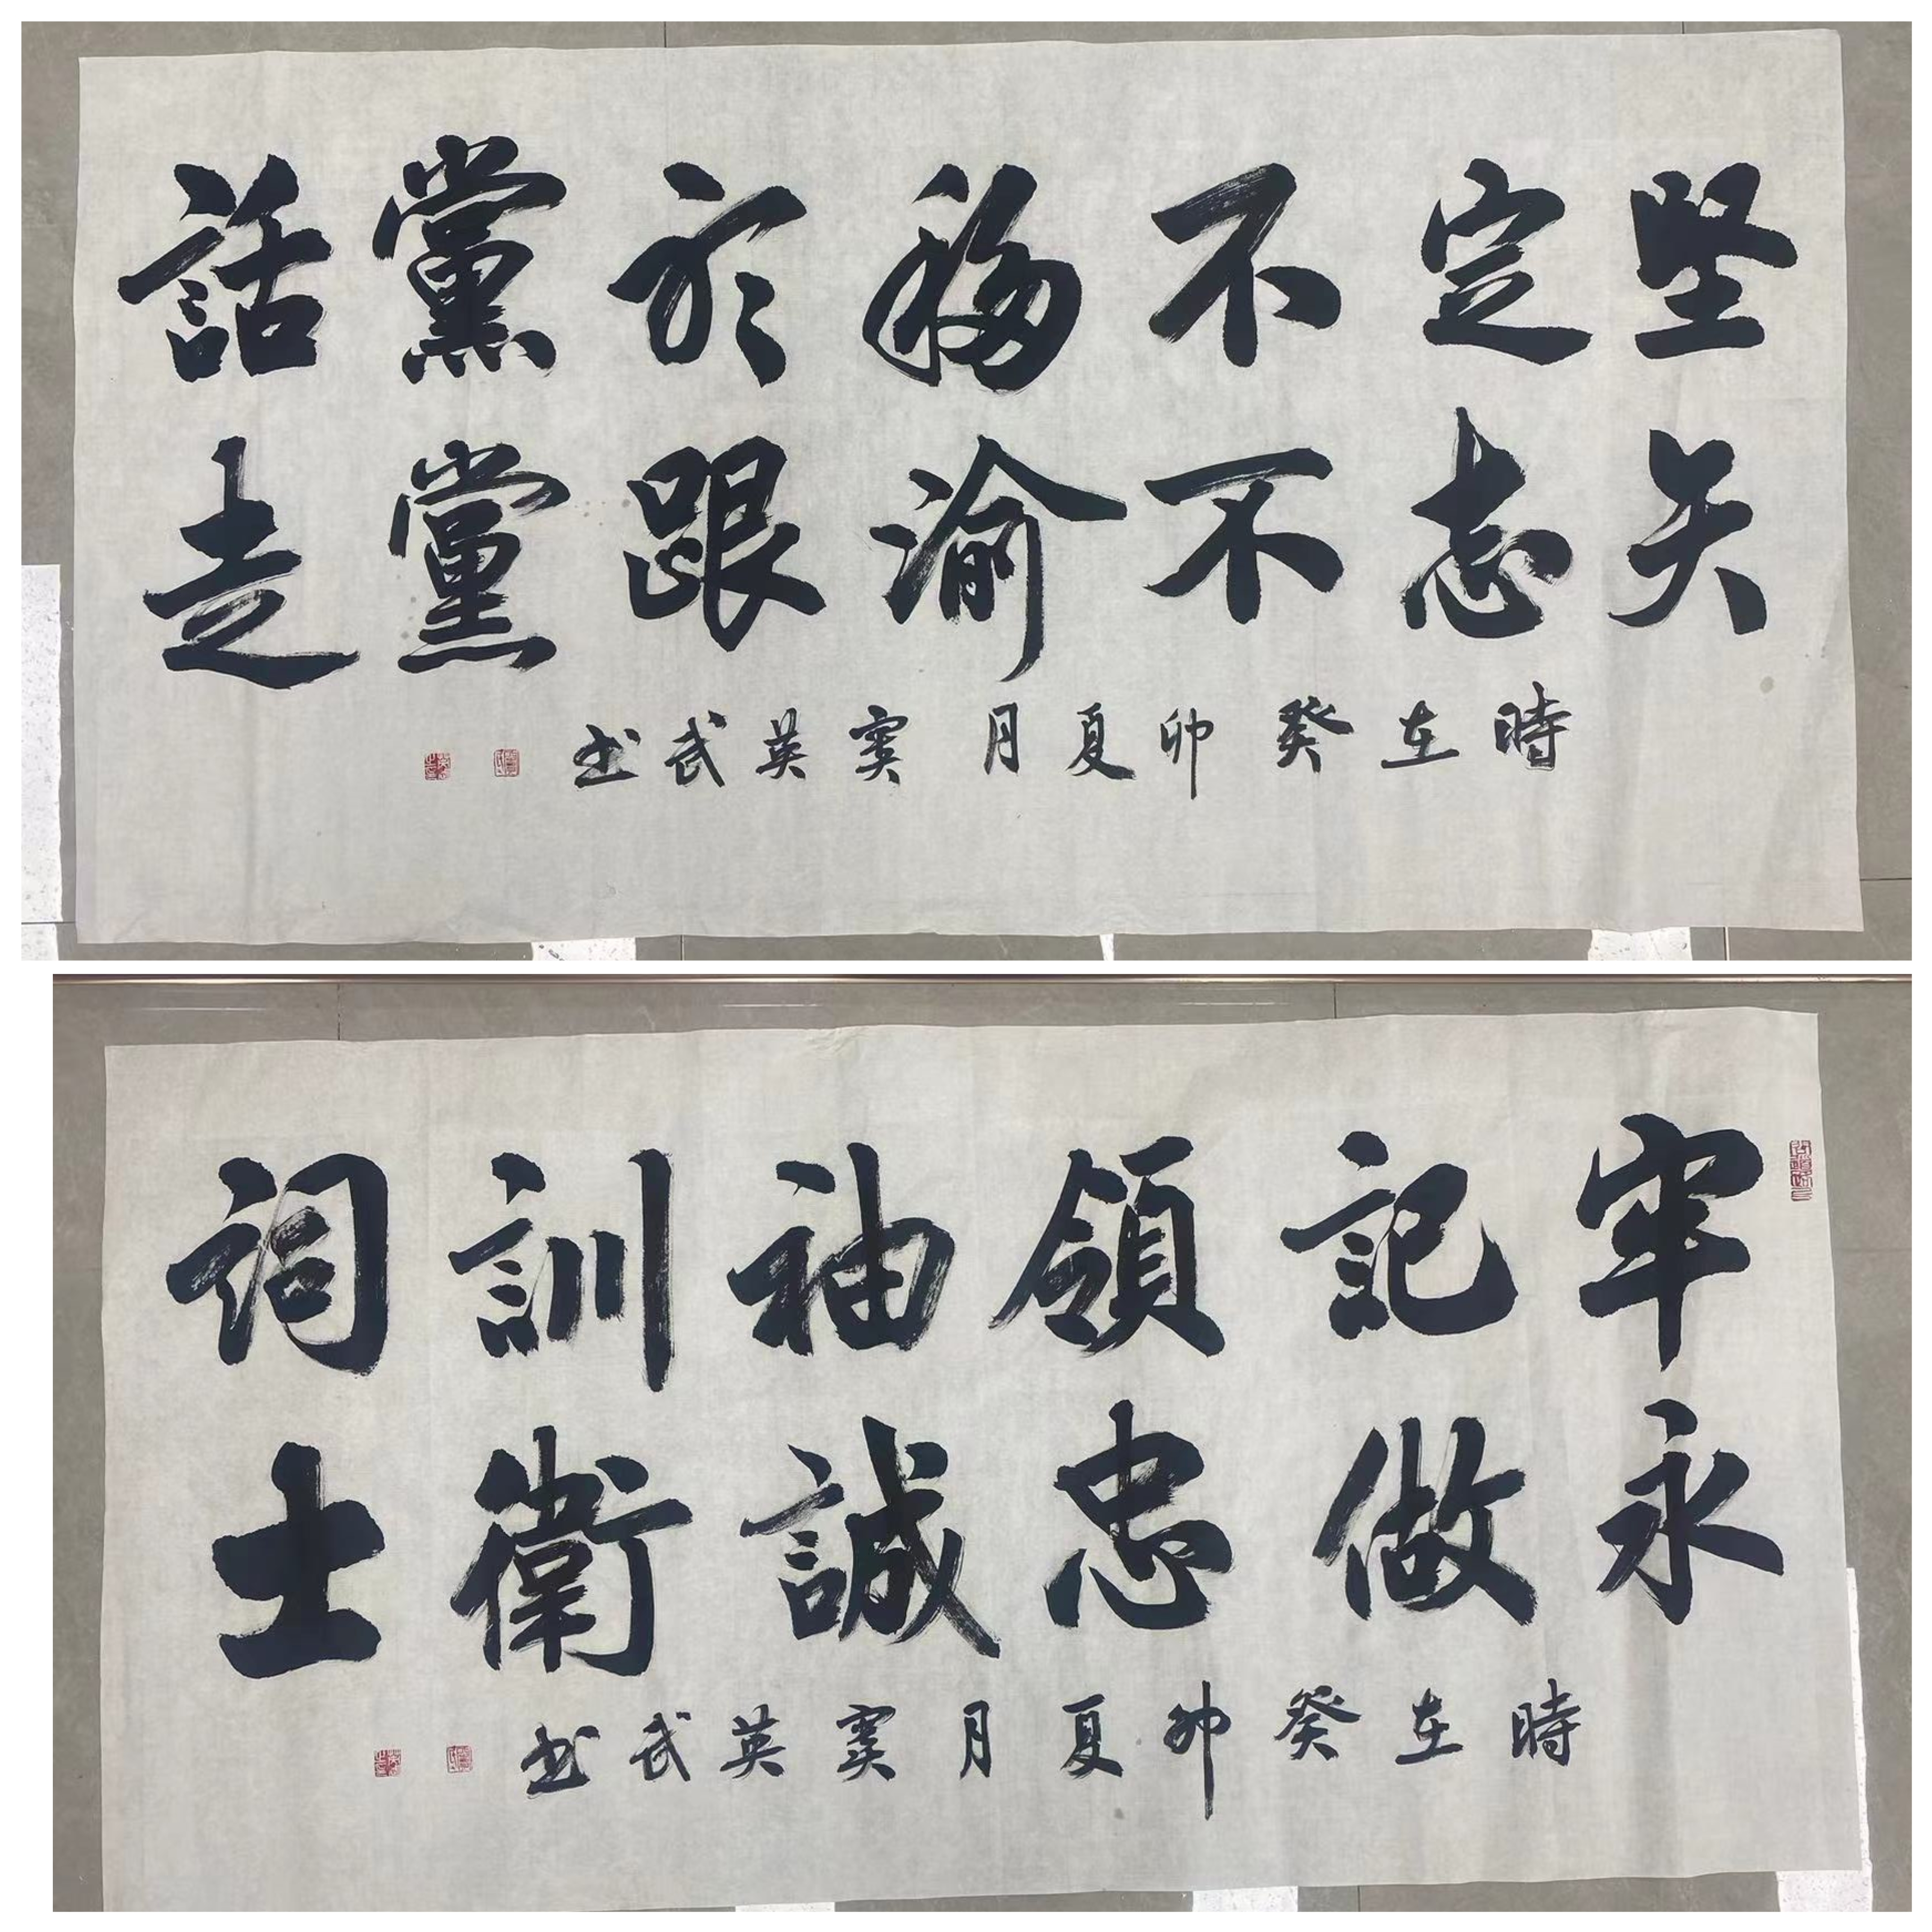 坚定不移於黨話
矢志不渝跟黨走
時在癸卯夏月窦英武书
牢記領袖訓詞
永做忠誠衛士
時在癸卯夏月窦英武书